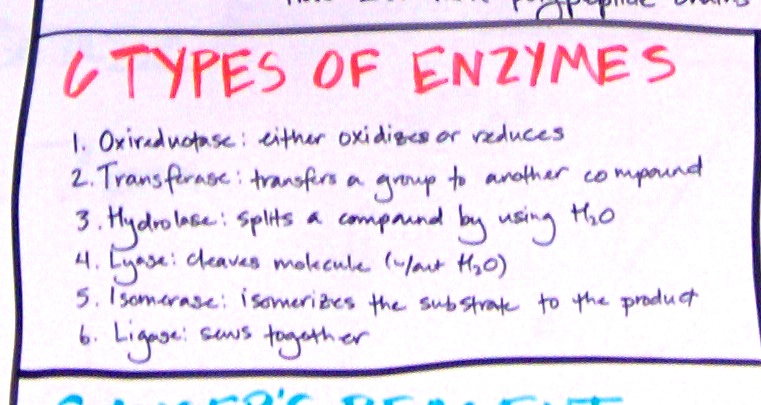 polypeptide chains
6 TYPES OF ENZYMES
1. Oxireductase: either oxidizes or reduces
2. Transferase: transfers a group to another compound
3. Hydrolase: splits a compound by using H₂O
4. Lyase: cleaves molecule (w/out H₂O)
5. Isomerase: isomerizes the substrate to the product
6. Ligase: sews together